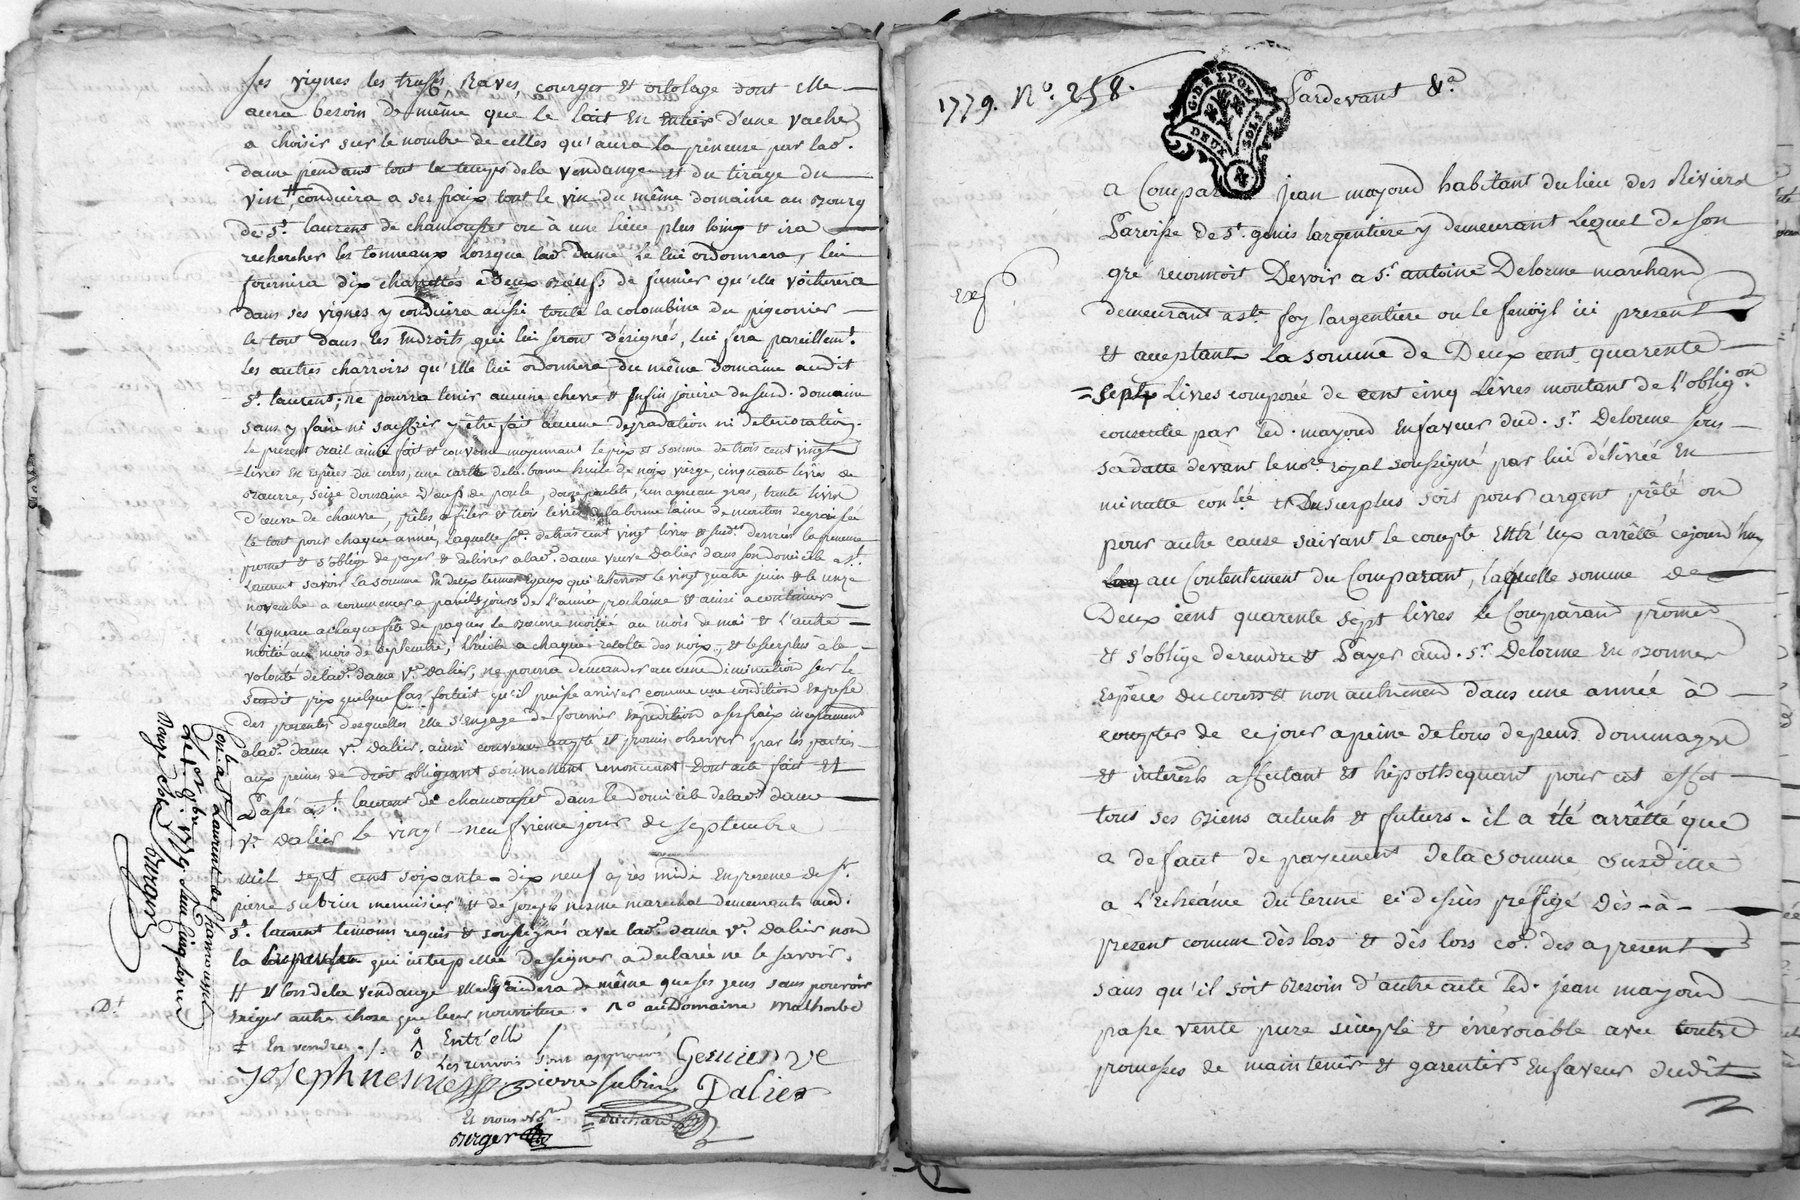 ses vignes les truffes, Raves, courges et ortolage dont elle
aura besoin de même que le lait en entier d'une vache
a choisir sur le nombre de celles qu'aura la preneuse par lad.
dame pendant tout le temps de la vendange et du tirage du
vin, conduira a ses fraix tout le vin du même domaine au Bourg
de St. laurent de chamousset ou à une lieue plus loing et ira
rechercher les tonneaux lorsque lad. dame le lui ordonnera, lui
fournira dix charretés a deux Boeufs de fumier qu'elle voiturera
dans ses vignes y conduira aussi toute la colombine du pigeonier
le tout dans les endroits qui lui seront désignés, lui fera pareillemt.
les autres charroirs qu'elle lui ordonnera du même domaine audit
St. laurent; ne pourra tenir aucune chevre et enfin jouira dusd. domaine
sans y faire ni souffrir y être fait aucune degradation ni deterioration.
le present Bail ainsi fait et convenu moyennant le prix et somme de trois cent vingt
livres en espèces du cours, une carte de la bonne huile de noix vierge, cinquante livres de
Beurre, seize douzaine d'oeufs de poule, douze poulets, un agneau gras, trente livres
d'oeuvre de chanvre, prêtes a filer et trois livres de la bonne laine de mouton degraissée
le tout pour chaque année, laquelle se. de trois cent vingt livres et susd. denrées la preneuse
promet et s'oblige de payer et delivrer a lad. dame veuve dalier dans son domicile a St.
laurent savoir la somme en deux termes egaux qui echerront le vingt quatre juin et le onze
novembre a commencer a pareils jours de l'année prochaine et ainsi a continuer
l'agneau a chaque fête de paques le Beurre moitié au mois de mai et l'autre
moitié au mois de septembre, l'huile a chaque recolte des noix, et le surplus à la
volonté de lad. dame ve. dalier, ne pourra demander aucune diminution sur le
susdit prix quelque cas fortuit qu'il puisse arriver comme une condition expresse
des presentes desquelles elle s'engage de fournir expedition a ses fraix incessament
a lad. dame ve. dalier, ainsi convenu accepté et promis observer par les parties
aux peines de droit obligeant soumettant renonceant Dont acte fait et
Passé a St. laurent de chamousset dans le domicile de lad. dame
ve. dalier le vingt-neufvieme jour de septembre
mil sept cent soixante-dix neuf après midi en presence de sr.
pierre subrin menuisier et de joseph nesme marechal demeurants aud.
St. laurent temoins requis et soussignés avec lad. dame ve. dalier non
la preneuse qui interpellée de signer a declarée ne le savoir.
# et lors de la vendange elle y aidera de même que ses gens sans pouvoir
exiger autre chose que leur nourriture. au Domaine Malhorbe
‡ En vendra ./. Entr'elle
Les renvois sont approuvés Genvier ve
Joseph nesme pierre subrin Dalier
Et nous Nore.
Berger Richard
Conl. a St. Laurent de chamousset
Le 1 8bre 1779 Reçu cinq livres
douze sols Berger
Dt
1779. No. 258.
G. DE LYON
DEUX SOLS
Pardevant &a
a Comparu jean mayoud habitant du lieu des Rivieres
Paroisse de St. genis largentiere y demeurant lequel de son
gré reconnoit Devoir a sr. antoine Delorme marchand
demeurant a ste foy largentiere ou le fenoÿl ici present
Et acceptant La somme de Deux cent quarente
= sept Livres composée de cent cinq Livres montant de l'obligon.
consentie par led. mayoud En faveur dud. sr. Delorme sous
sa datte devant le nore. royal soussigné par lui délivrée En
minutte conlée et Du surplus soit pour argent prêté ou
pour autre cause suivant le compte Entr'eux arrêtté cejourd'huy
au Contentement du Comparant, laquelle somme de
Deux cent quarente sept livres le Comparant promet
et s'oblige de rendre et Payer aud. sr. Delorme En Bonnes
Espèces du cours et non autrement dans une année à
compter de ce jour a peine de tous depens dommages
et interèsts affectant et hipothequant pour cet effet
tous ses Biens actuels et futurs. il a été arrêtté que
a defaut de payement de la somme susditte
a l'echéance du terme ci dessus prefigé Dès-à-
present comme dès lors et dès lors co. des a present
sans qu'il soit Besoin d'autre acte led. jean mayoud
passe vente pure simple et irrévocable avec toutes
promesses de maintenir et garentir En faveur dudit